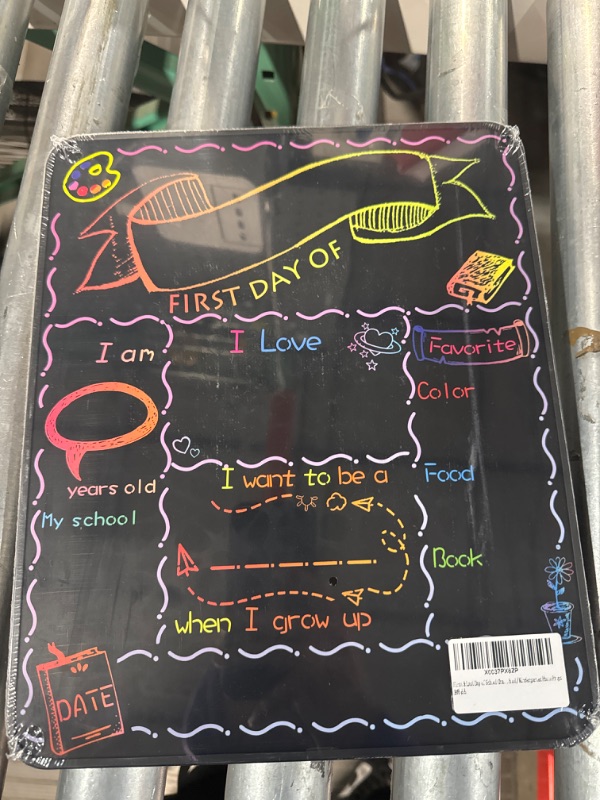 FIRST DAY OF
I am
years old
My school
I Love
Favorite
Color
Food
Book
I want to be a
when I grow up
DATE
X0C37PX62P